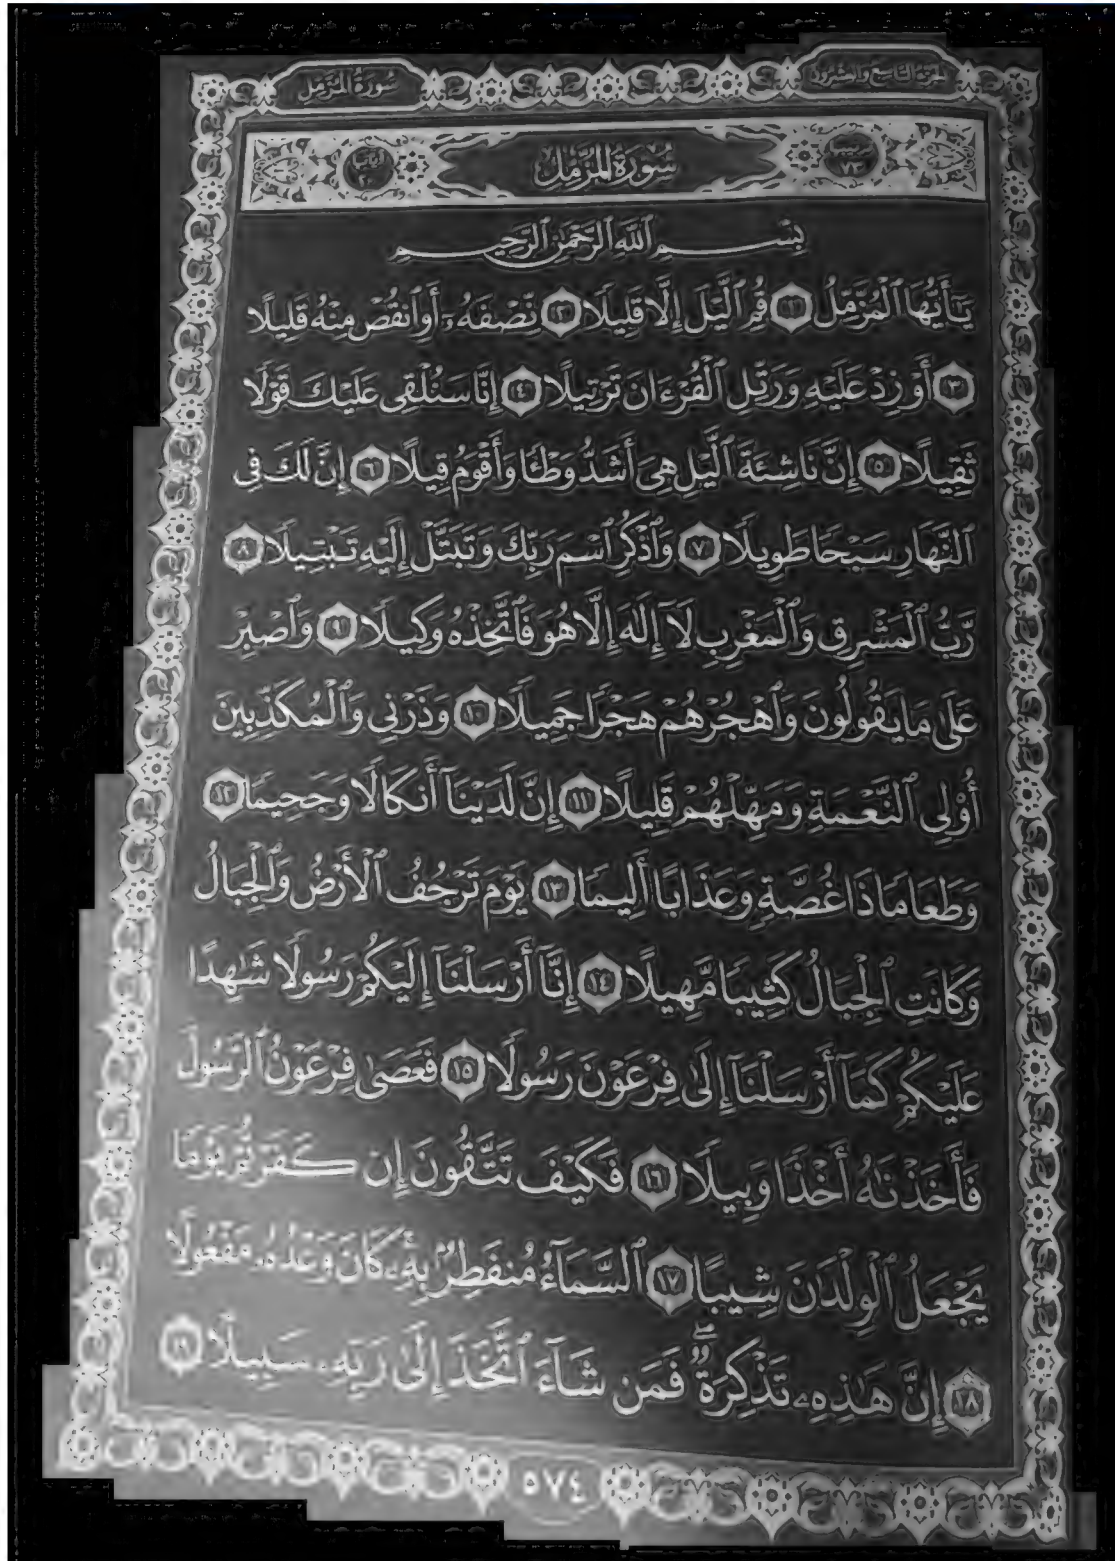 الجزء التاسع والعشرون
سُورَةُ المُزَّمِّل
سُورَةُ المُزَّمِّل
بِسْمِ ٱللَّهِ ٱلرَّحْمَٰنِ ٱلرَّحِيمِ
يَٰٓأَيُّهَا ٱلْمُزَّمِّلُ ١ قُمِ ٱلَّيْلَ إِلَّا قَلِيلًا ٢ نِّصْفَهُۥٓ أَوِ ٱنقُصْ مِنْهُ قَلِيلًا
٣ أَوْ زِدْ عَلَيْهِ وَرَتِّلِ ٱلْقُرْءَانَ تَرْتِيلًا ٤ إِنَّا سَنُلْقِى عَلَيْكَ قَوْلًا
ثَقِيلًا ٥ إِنَّ نَاشِئَةَ ٱلَّيْلِ هِىَ أَشَدُّ وَطْـًٔا وَأَقْوَمُ قِيلًا ٦ إِنَّ لَكَ فِى
ٱلنَّهَارِ سَبْحًا طَوِيلًا ٧ وَٱذْكُرِ ٱسْمَ رَبِّكَ وَتَبَتَّلْ إِلَيْهِ تَبْتِيلًا ٨
رَّبُّ ٱلْمَشْرِقِ وَٱلْمَغْرِبِ لَآ إِلَٰهَ إِلَّا هُوَ فَٱتَّخِذْهُ وَكِيلًا ٩ وَٱصْبِرْ
عَلَىٰ مَا يَقُولُونَ وَٱهْجُرْهُمْ هَجْرًا جَمِيلًا ١٠ وَذَرْنِى وَٱلْمُكَذِّبِينَ
أُو۟لِى ٱلنَّعْمَةِ وَمَهِّلْهُمْ قَلِيلًا ١١ إِنَّ لَدَيْنَآ أَنكَالًا وَجَحِيمًا ١٢
وَطَعَامًا ذَا غُصَّةٍ وَعَذَابًا أَلِيمًا ١٣ يَوْمَ تَرْجُفُ ٱلْأَرْضُ وَٱلْجِبَالُ
وَكَانَتِ ٱلْجِبَالُ كَثِيبًا مَّهِيلًا ١٤ إِنَّآ أَرْسَلْنَآ إِلَيْكُمْ رَسُولًا شَٰهِدًا
عَلَيْكُمْ كَمَآ أَرْسَلْنَآ إِلَىٰ فِرْعَوْنَ رَسُولًا ١٥ فَعَصَىٰ فِرْعَوْنُ ٱلرَّسُولَ
فَأَخَذْنَٰهُ أَخْذًا وَبِيلًا ١٦ فَكَيْفَ تَتَّقُونَ إِن كَفَرْتُمْ يَوْمًا
يَجْعَلُ ٱلْوِلْدَٰنَ شِيبًا ١٧ ٱلسَّمَآءُ مُنفَطِرٌۢ بِهِۦ كَانَ وَعْدُهُۥ مَفْعُولًا
١٨ إِنَّ هَٰذِهِۦ تَذْكِرَةٌ ۖ فَمَن شَآءَ ٱتَّخَذَ إِلَىٰ رَبِّهِۦ سَبِيلًا ١٩
٥٧٤